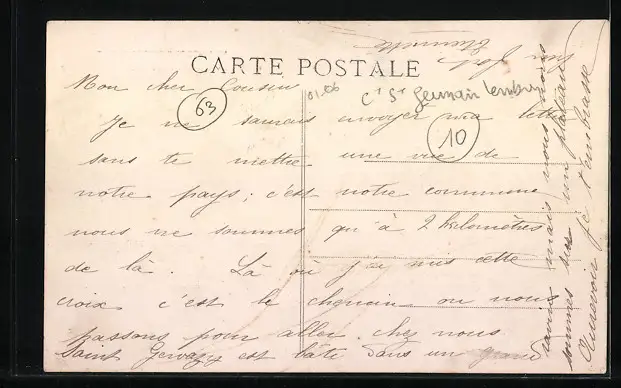 CARTE POSTALE
Mon cher Cousin
63
01.06
Ct St germain lembron
10
Je ne saurais envoyer ma lettre
sans te mettre une vue de
notre pays; c'est notre commune
nous ne sommes qu'à 2 kilomètres
de là. Là où j'ai mis cette
croix c'est le chemin ou nous
passons pour aller chez nous
Saint Gervazy est bâti dans un grand
ravin mais nous nous
sommes sur un plateau
Aurevoir je t'embrasse